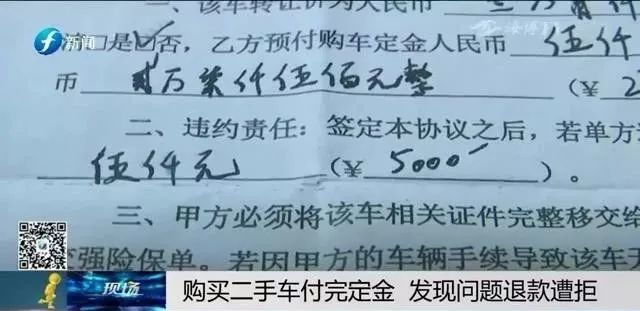 一、该车转让价为人民币
新闻
海博TV
是☑否，乙方预付购车定金人民币 伍仟
币 贰万柒仟伍佰元整 (¥ 2
二、违约责任：签定本协议之后，若单方
伍仟元 (¥ 5000 )。
三、甲方必须将该车相关证件完整移交给
强险保单。若因甲方的车辆手续导致该车
现场
购买二手车付完定金 发现问题退款遭拒